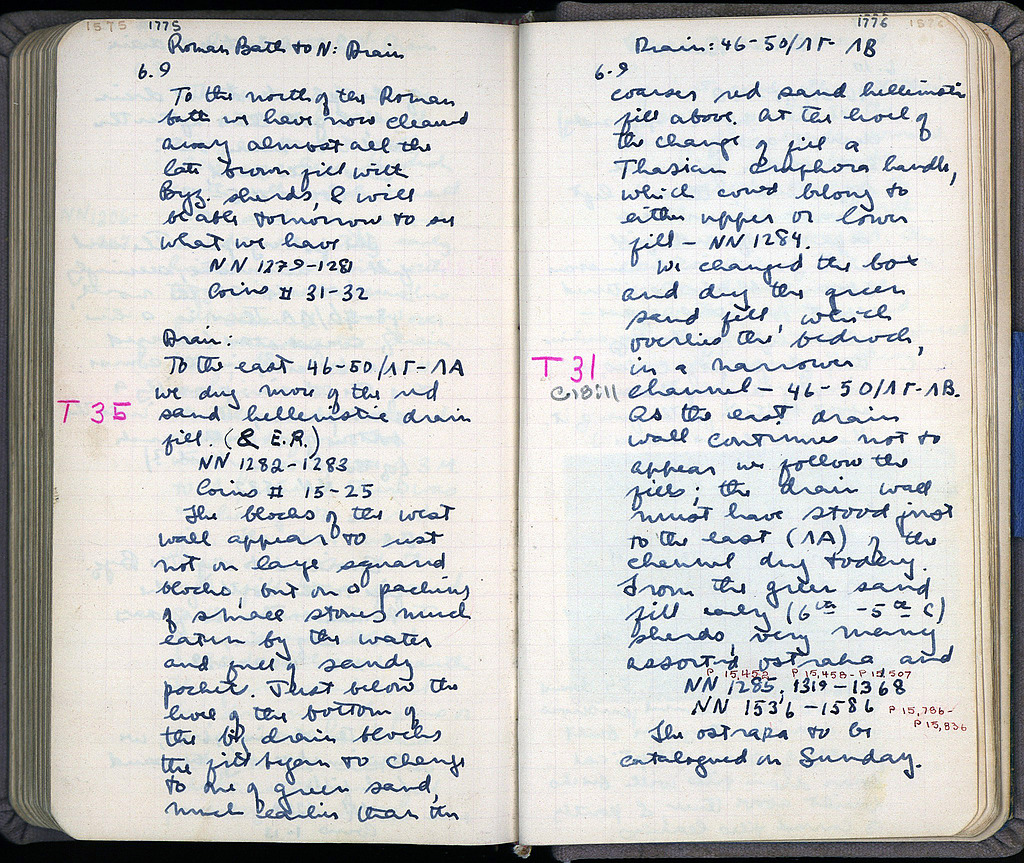 1575 1775
Roman Bath to N: Drain
6.9
To the north of the Roman
bath we have now cleaned
away almost all the
late brown fill with
Byz. sherds, & will
be able tomorrow to see
what we have
NN 1279-1281
Coins # 31-32
Drain:
To the east 46-50/ΛΓ-ΛΑ
we dug more of the red
T 35
sand hellenistic drain
fill. (& E.R.)
NN 1282-1283
Coins # 15-25
The blocks of the west
wall appear to rest
not on large squared
blocks, but on a packing
of small stones much
eaten by the water
and full of sandy
pocket. Just below the
level of the bottom of
the big drain blocks
the fill began to change
to one of green sand,
much earlier than the
1776 1576
Drain: 46-50/ΛΓ-ΛΒ
6-9
coarser red sand hellenistic
fill above. At the level of
the change of fill a
Thasian amphora handle,
which could belong to
either upper or lower
fill - NN 1284.
We changed the box
and dug the green
sand fill, which
overlies the bedrock,
T 31
in a narrower
channel - 46-50/ΛΓ-ΛΒ.
As the east drain
wall continues not to
appear we follow the
fills; the drain wall
must have stood just
to the east (ΛΑ) of the
channel dug today.
From the green sand
fill early (6th - 5th C)
sherds, very many
assorted ostraka and
P 15,452 P 15,458- P 15,507
NN 1285, 1319-1368
NN 1536-1586 P 15,786-
P 15,836
The ostraka to be
catalogued on Sunday.